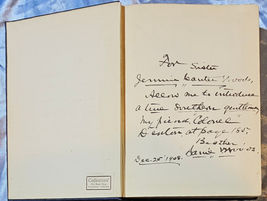 For Sister
Jennie Carter Woods,
Allow me to introduce
a true Southern gentleman,
my friend, "Colonel"
Denton at page 155.
Brother
Woods
Dec. 25th 1908.